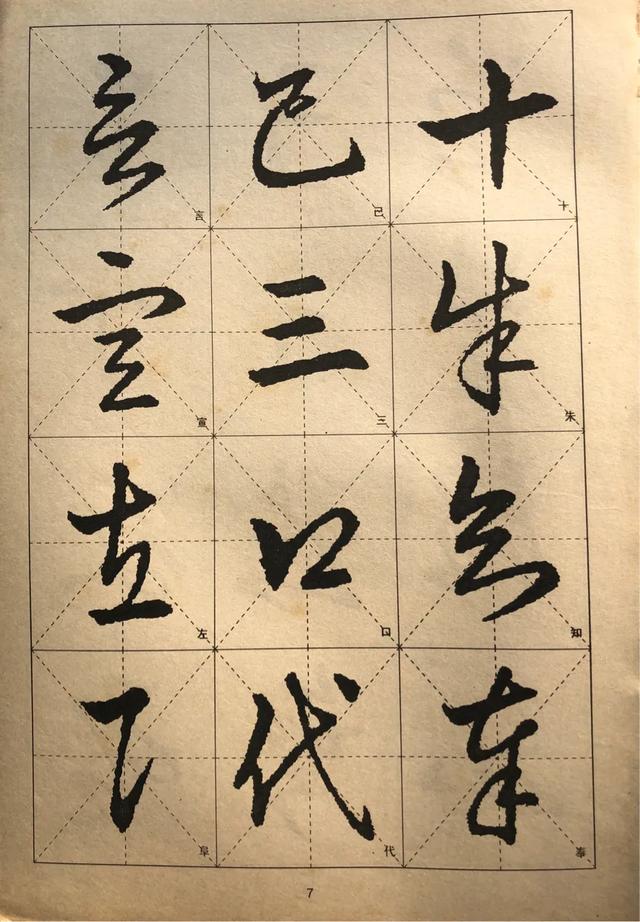 十朱知奉
十朱知奉
己三口代
己三口代
言宣左阜
言宣左阜
7